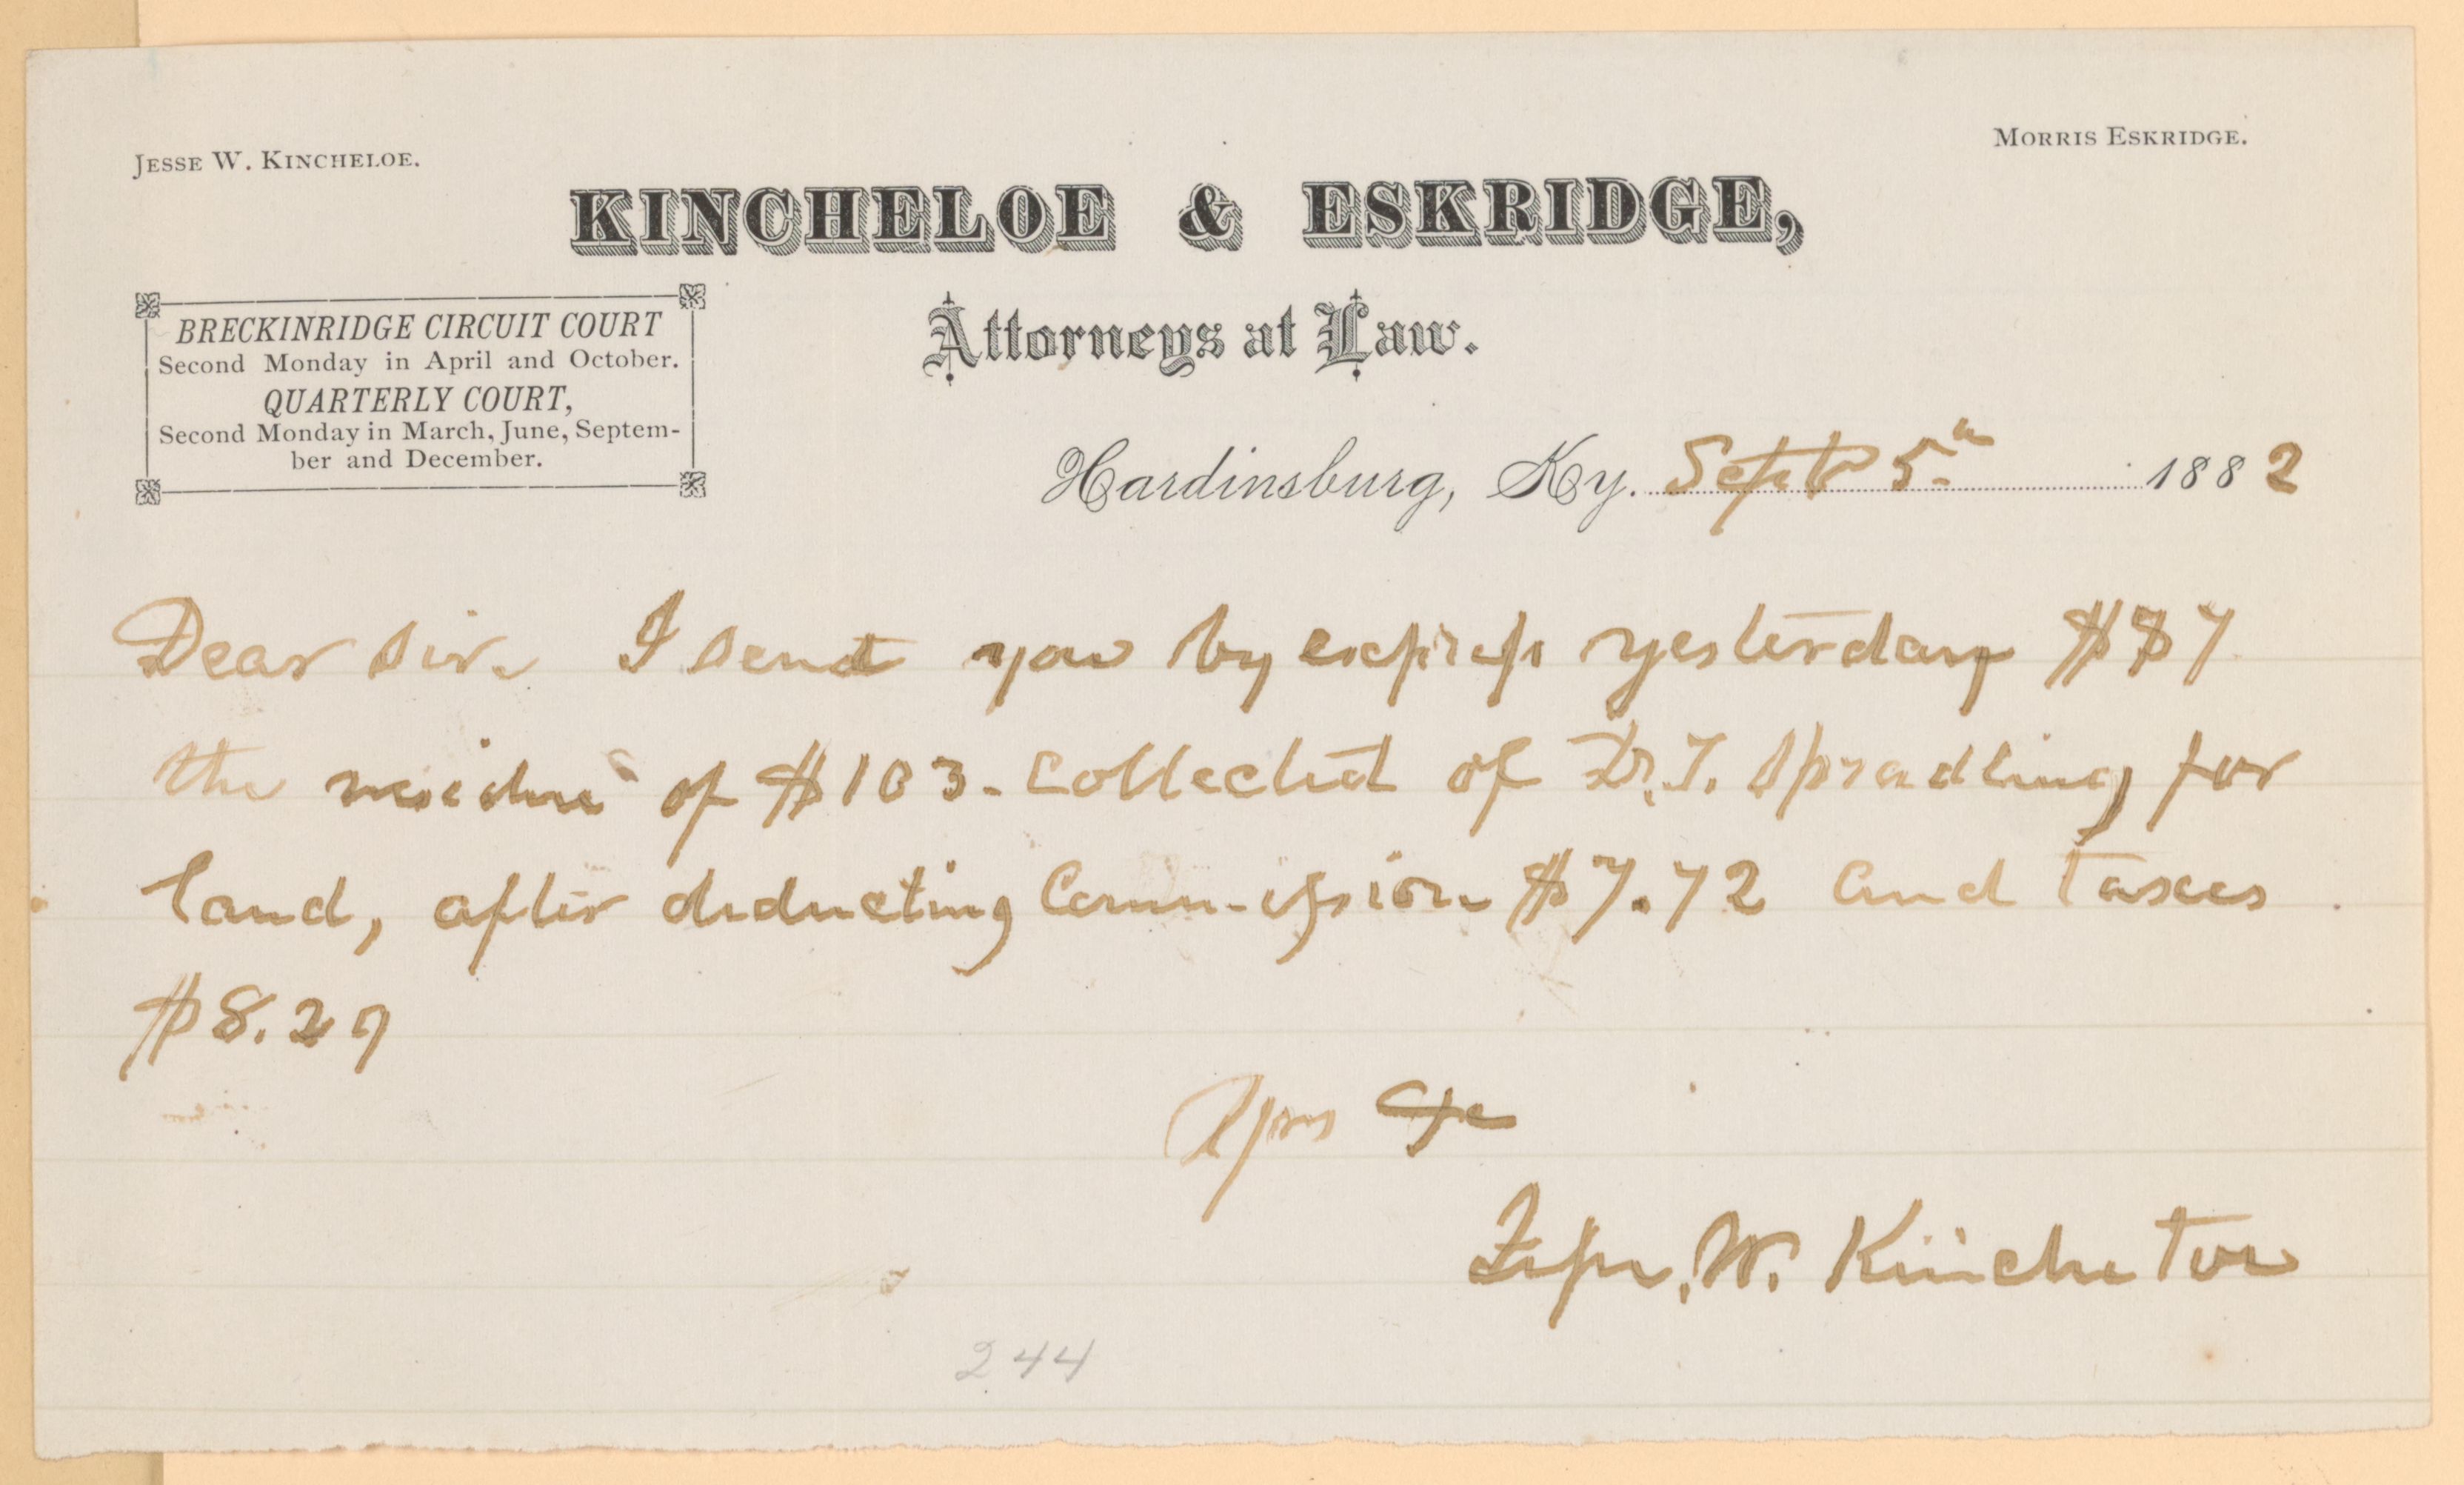 JESSE W. KINCHELOE.
MORRIS ESKRIDGE.
KINCHELOE & ESKRIDGE,
Attorneys at Law.
BRECKINRIDGE CIRCUIT COURT
Second Monday in April and October.
QUARTERLY COURT,
Second Monday in March, June, Septem-
ber and December.
Hardinsburg, Ky. Sept 5" 1882
Dear Sir. I send you by express yesterday $87
the residue of $103. collected of D. T. Spradling for
land, after deducting Commission $7.72 and Taxes
$8.29
Yrs &c
Jesse. W. Kincheloe
244